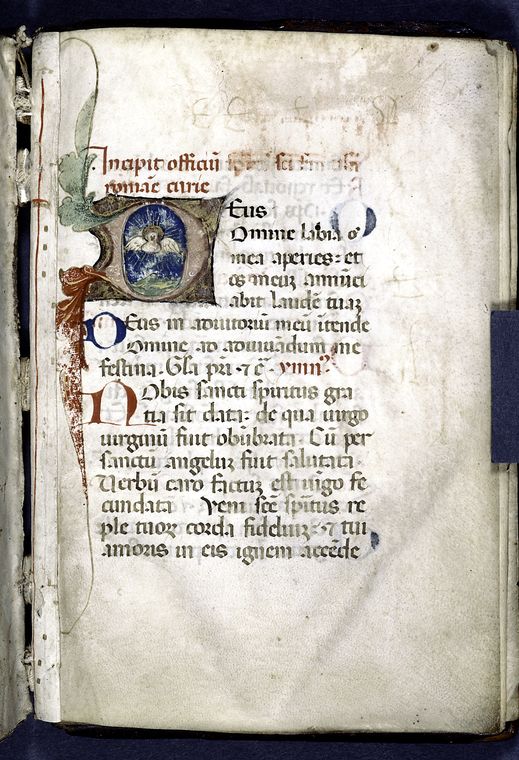 Incipit officiũ sc̃i
romãe curie
Eus
Omine labia
mea aperies: et
os meuʒ annũci
abit laudẽ tuaʒ
DEus in adiutoriũ meũ ĩtende
Domine ad adiuuãdum me
festina. Gl̃a pr̃i ⁊ c̃. ymn⁹.
NObis sancti spiritus gra
tia sit data: de qua uirgo
uirginũ fuit obũbrata. Cũ per
sanctũ angeluʒ fuit salutata.
Uerbũ caro factuʒ est uĩgo fe
cundata. Veni sc̃e sp̃itus re
ple tuoʒ corda fideliuʒ: ⁊ tui
amoris in eis ignem accẽde